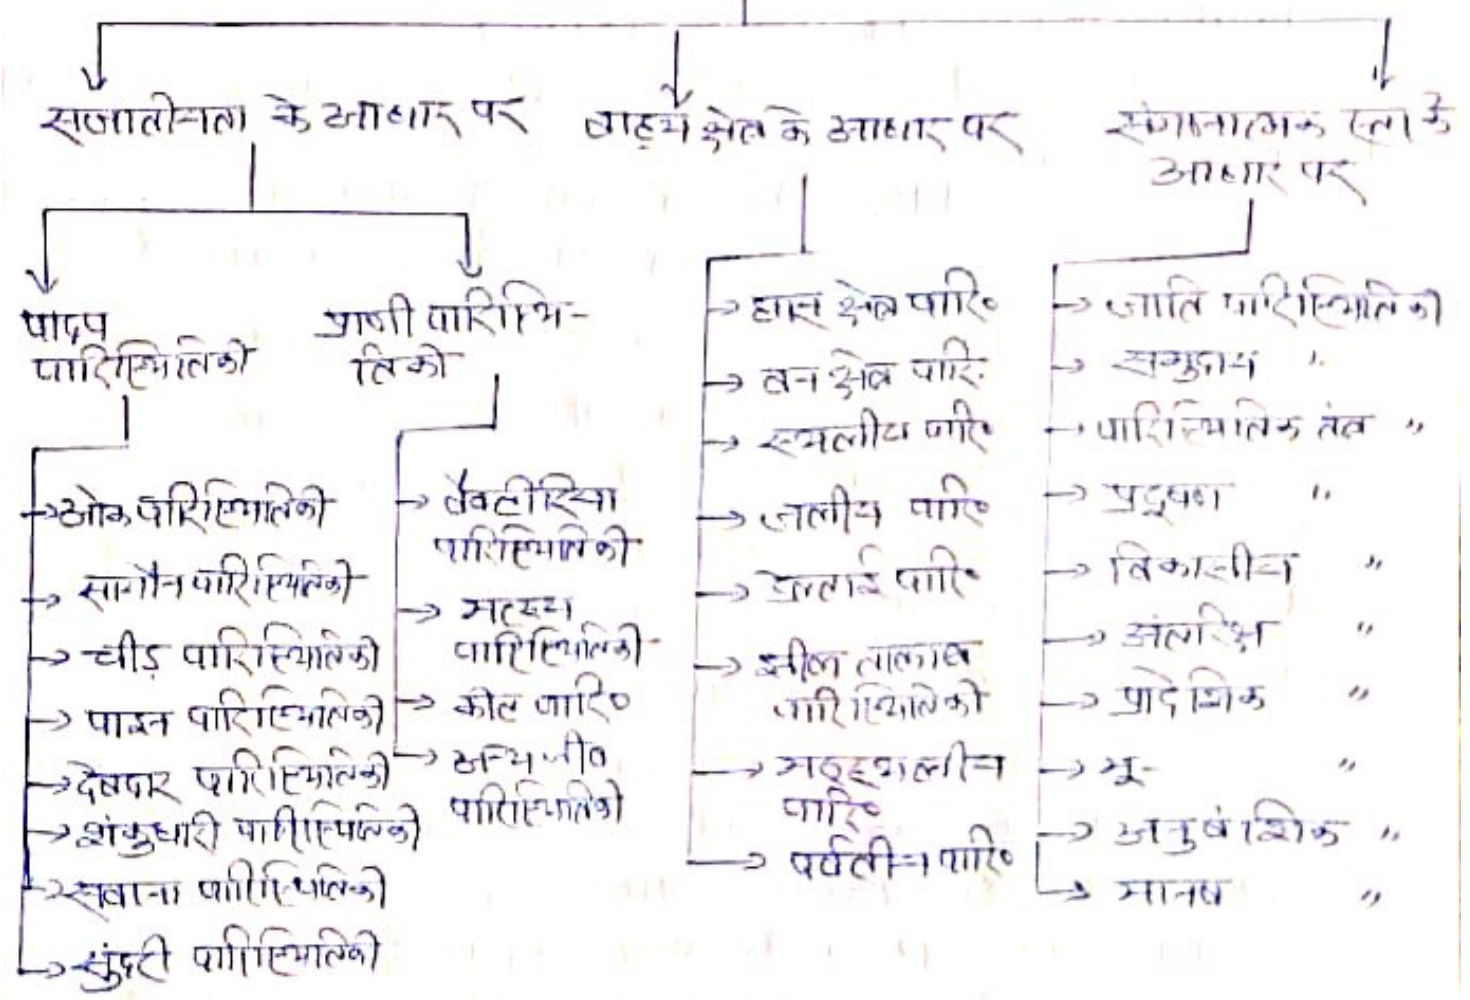 सजातीयता के आधार पर
बाह्य क्षेत्र के आधार पर
संगठनात्मक स्तर के
आधार पर
पादप
पारिस्थितिकी
प्राणी पारिस्थि-
तिकी
ओक पारिस्थितिकी
सागौन पारिस्थितिकी
चीड़ पारिस्थितिकी
पाइन पारिस्थितिकी
देवदार पारिस्थितिकी
शंकुधारी पारिस्थितिकी
सवाना पारिस्थितिकी
सुंदरी पारिस्थितिकी
बैक्टीरिया
पारिस्थितिकी
मत्स्य
पारिस्थितिकी
कीट पारि०
अन्य जीव
पारिस्थितिकी
घास क्षेत्र पारि०
वन क्षेत्र पारि०
स्थलीय पारि०
जलीय पारि०
डेल्टाई पारि०
झील तालाब
पारिस्थितिकी
मरुस्थलीय
पारि०
पर्वतीय पारि०
जाति पारिस्थितिकी
समुदाय "
पारिस्थितिक तंत्र "
प्रदूषण "
विकासीय "
अंतरिक्ष "
प्रादेशिक "
भू- "
अनुवांशिक "
मानव "